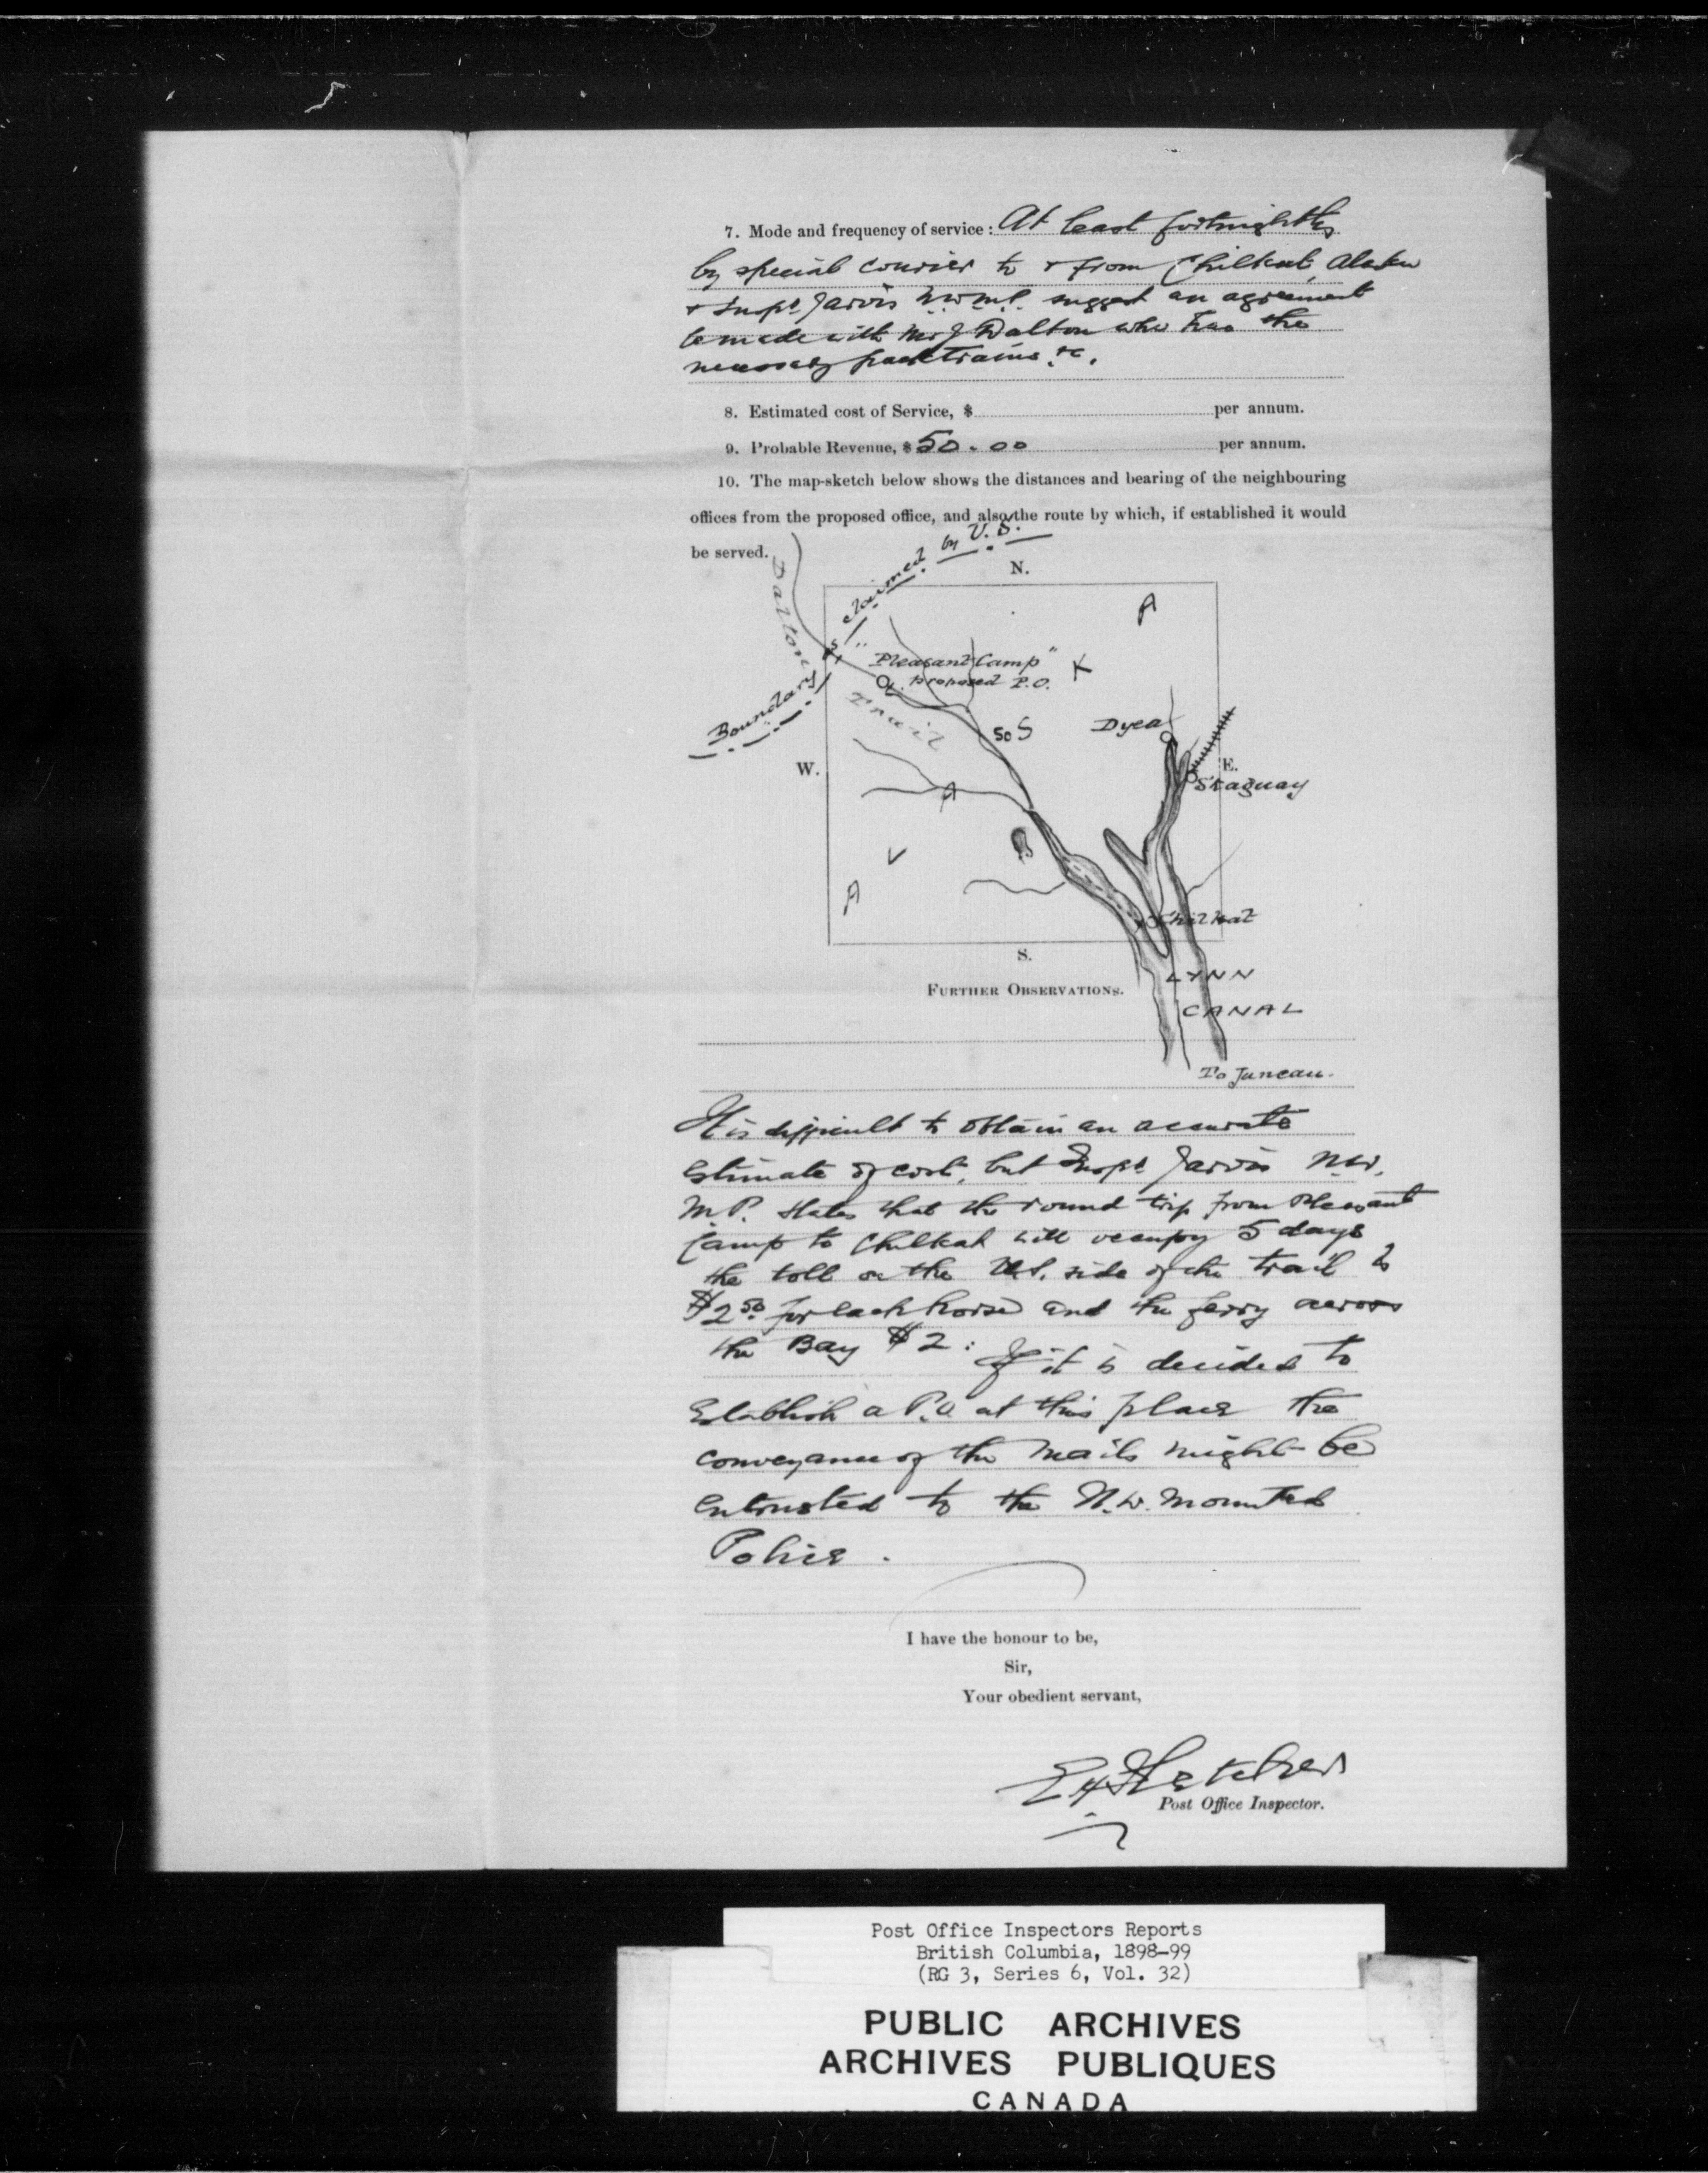 7. Mode and frequency of service: At least fortnightly
by special courier to & from Chilkat, Alaska
& Insp. Jarvis N.W.M.P. suggest an agreement
be made with Mr J Dalton who has the
necessary pack trains &c.
8. Estimated cost of Service, $ per annum.
9. Probable Revenue, $ 50.00 per annum.
10. The map-sketch below shows the distances and bearing of the neighbouring
offices from the proposed office, and also the route by which, if established it would
be served.
Boundary claimed by U.S.
N.
Dalton Trail
"Pleasant Camp"
proposed P.O.
A
K
S
A
L
A
50
Dyea
W.
E.
Skaguay
Chilkat
S.
LYNN
CANAL
To Juneau.
FURTHER OBSERVATIONS.
It is difficult to obtain an accurate
estimate of cost, but Insp. Jarvis N.W.
M.P. states that the round trip from Pleasant
Camp to Chilkat will occupy 5 days
the toll on the U.S. side of the trail is
$2.50 for each horse and the ferry across
the Bay $2: If it is decided to
Establish a P.O. at this place the
conveyance of the mails might be
entrusted to the N.W. Mounted
Police.
I have the honour to be,
Sir,
Your obedient servant,
E H Fletcher
Post Office Inspector.
Post Office Inspectors Reports
British Columbia, 1898-99
(RG 3, Series 6, Vol. 32)
PUBLIC ARCHIVES
ARCHIVES PUBLIQUES
CANADA